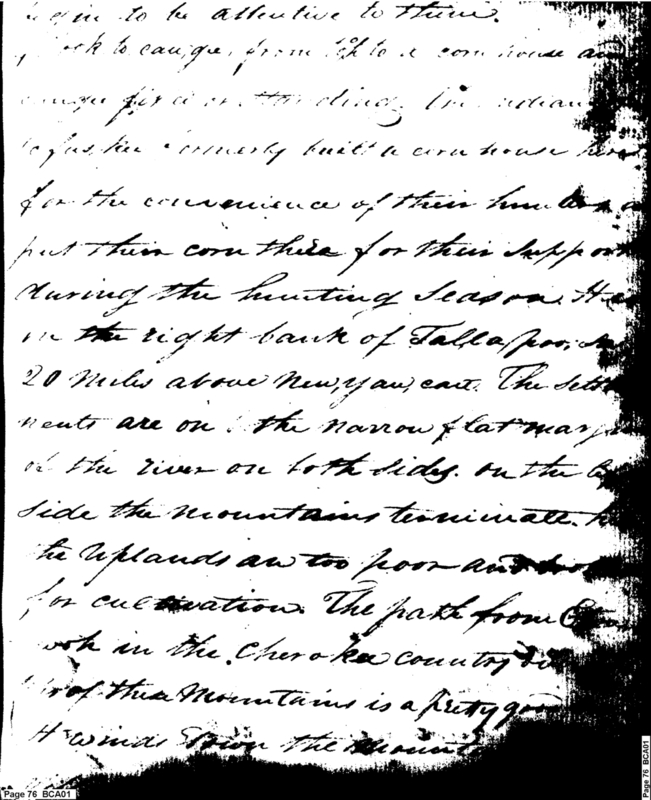 begin to be attentive to them.
Took to cau,ge, from to a corn house and
cau,ge fixed or standing. The Indians
built a corn house here
for the convenience of their hunters
put their corn there for their support
during the hunting season. It is
on the right bank of Tallapoo,
20 miles above New,yau,cau. The settle
ments are on the narrow flat margins
of the river on both sides. on the left
side the mountains terminate here
the uplands are too poor and broken
for cultivation. The path from
in the Cherokee country
of these Mountains is a pretty good
It winds down the mount
Page 76 BCA01
Page 76 BCA01